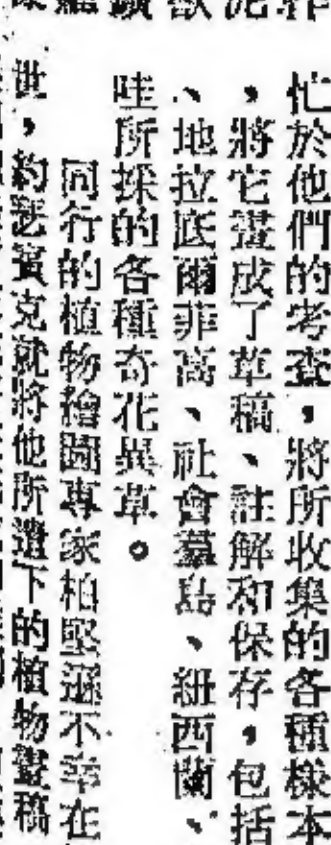 忙於他們的考查,將所收集的各種樣本
,將它畫成了草稿、註解和保存,包括
、地拉底爾菲高、社會羣島、紐西蘭、
哇所採的各種奇花異草。
同行的植物繪圖專家柏堅遜不幸在
世,約瑟賓克就將他所遺下的植物畫稿